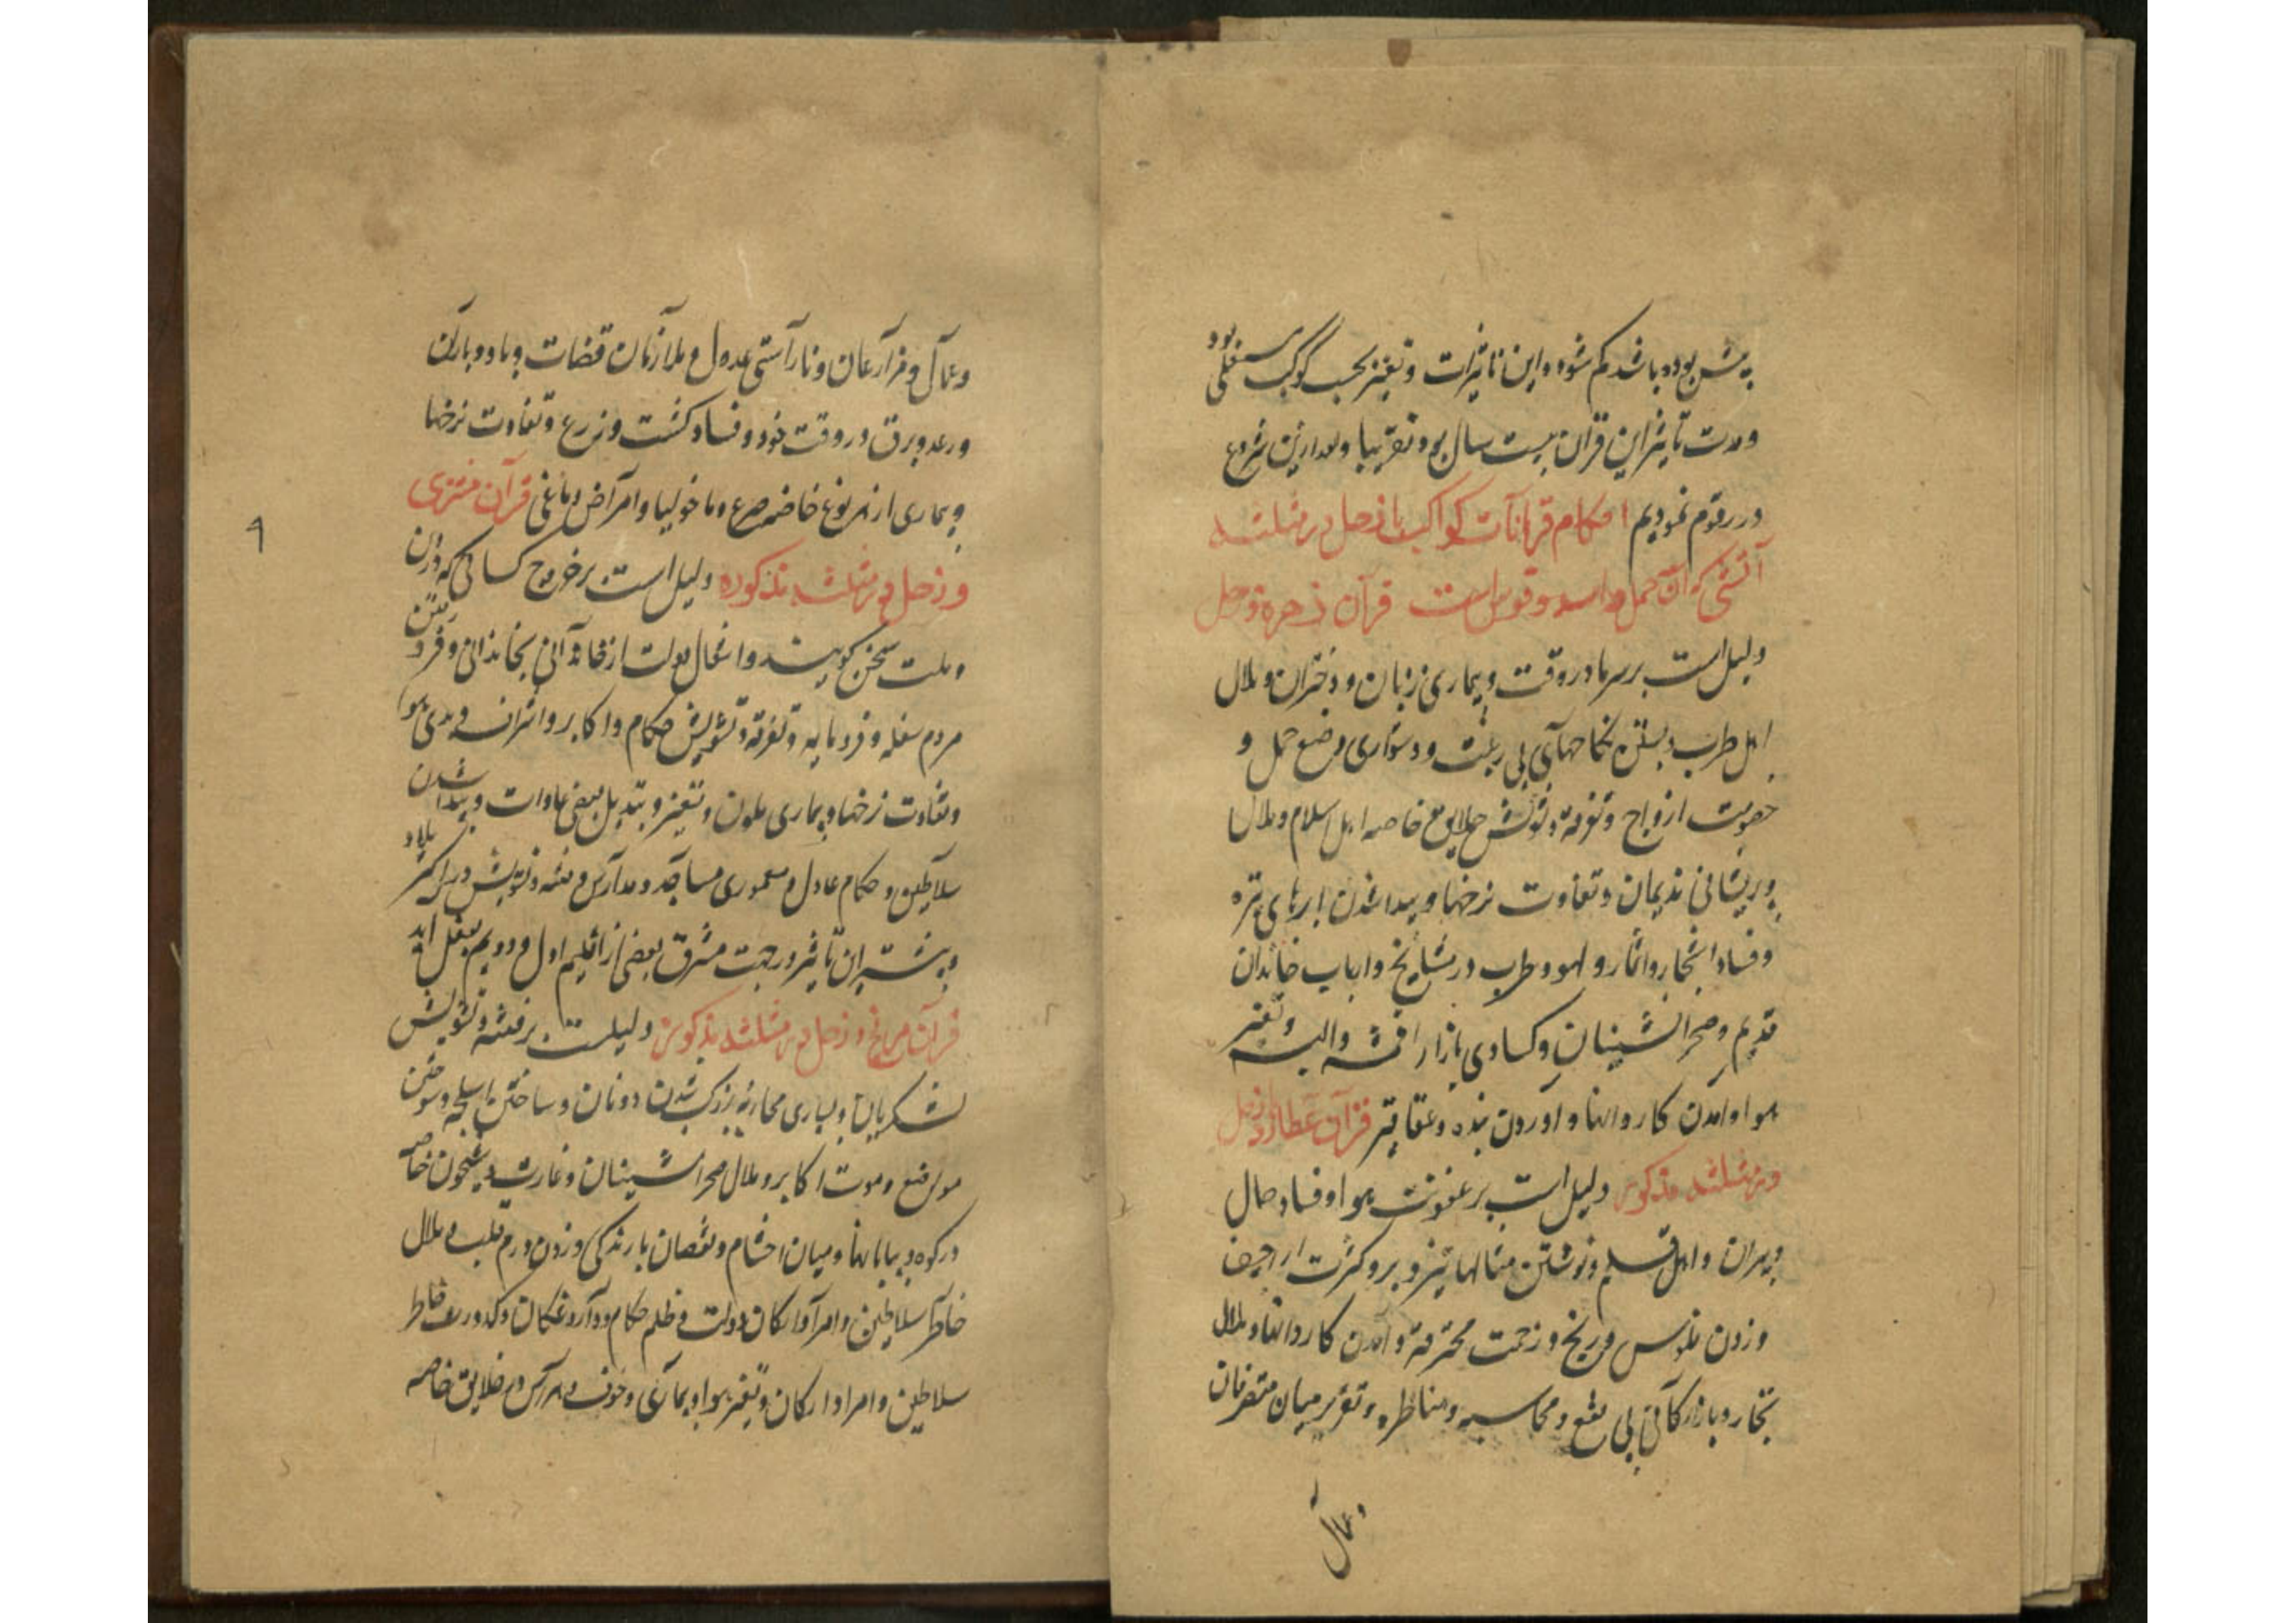 پیش بوده باشد کم شود و این تاثیرات و تغییر بحسب کوکب سفلی بود
و مدت تاثیر این قران بیست سال بود تقریبا و بعد ازین شروع
در رقوم نمودیم احکام قرانات کواکب با زحل در مثلثه
آتشی که آن حمل و اسد و قوس است قرآن زحره و زحل
دلیل است بر سرما در وقت و بیماری زنان و دختران و ملال
اهل طرب و بستن نکاحهای بی رغبت و دشواری وضع حمل و
خصومت ازواج و تفرقه و تشویش خلایق خاصه اهل اسلام و ملال
و پریشانی ندیمان و تفاوت نرخها و پیدا شدن ابرهای تیره
و فساد اشجار و اثمار و لهو و طرب در مشایخ و ارباب خاندان
قدیم و صحرا نشینان و کسادی بازار اقمشه و البسه و تغییر
هوا و آمدن کاروانها و آوردن بنده و عقاقیر قرآن عطارد و زحل
در مثلثه مذکور دلیل است بر عفونت هوا و فساد حال
دبیران و اهل قلم و نوشتن مثالها بتزویر و کثرت اراجیف
و زدن فلوس و رنج و زحمت محترفه و آمدن کاروانها و ملال
تجار و بازرکانی بی نفع و محاسبه و مناظره و تقریر میان متصرفان
و عمال
و عمال و مزارعان و ناراستی عدول و ملازمان قضات و باد و باران
و رعد و برق در وقت خود و فساد کشت و زرع و تفاوت نرخها
و بیماری از هر نوع خاصه صرع و ماخولیا و امراض دماغی قرآن مشتری
و زحل در مثلثه مذکوره دلیل است بر خروج کسانی که در دین
و ملت سخن کویند و انتقال دولت از خاندانی بخاندانی و
مردم سفله و فرومایه و تفرقه و تشویش حکام و اکابر و اشراف و بدی هوا
و تفاوت نرخها و بیماری ملون و تغییر و تبدیل بعضی عادات و پیدا شدن
سلاطین و حکام عادل و معموری مساجد و مدارس و فتنه و تشویش در اکثر بلاد
و بیشتر این تاثیر در جهت مشرق بعضی از اقلیم اول و دویم بفعل آید
قرآن مریخ و زحل در مثلثه مذکور دلیلست بر فتنه و تشویش
لشکریان و بسیاری محاربه بزرک شدن دونان و ساختن اسلحه و سوختن
مواضع و موت اکابر و ملال صحرا نشینان و غارت و شبیخون خاصه
در کوه و بیابانها و میان احشام و نقصان بارندکی و زدن درم قلب و ملال
خاطر سلاطین و امرا و ارکان دولت و ظلم حکام و داروغکان و کدورت خاطر
سلاطین و امرا و ارکان و تغییر هوا و بیماری و خوف و هراس در خلایق خاصه
۹